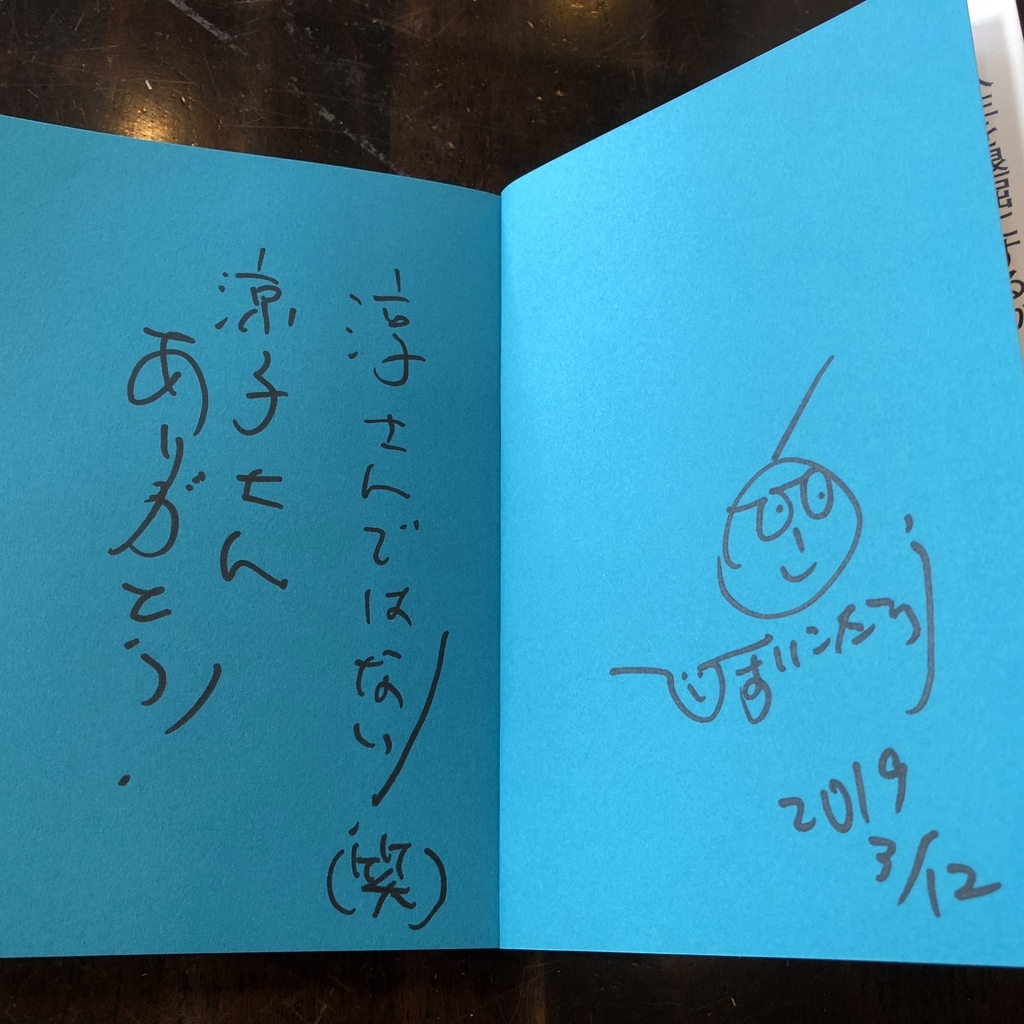 淳さんではない!(笑)
涼子さん
ありがとう!
ひすいこたろう
2019
3/12